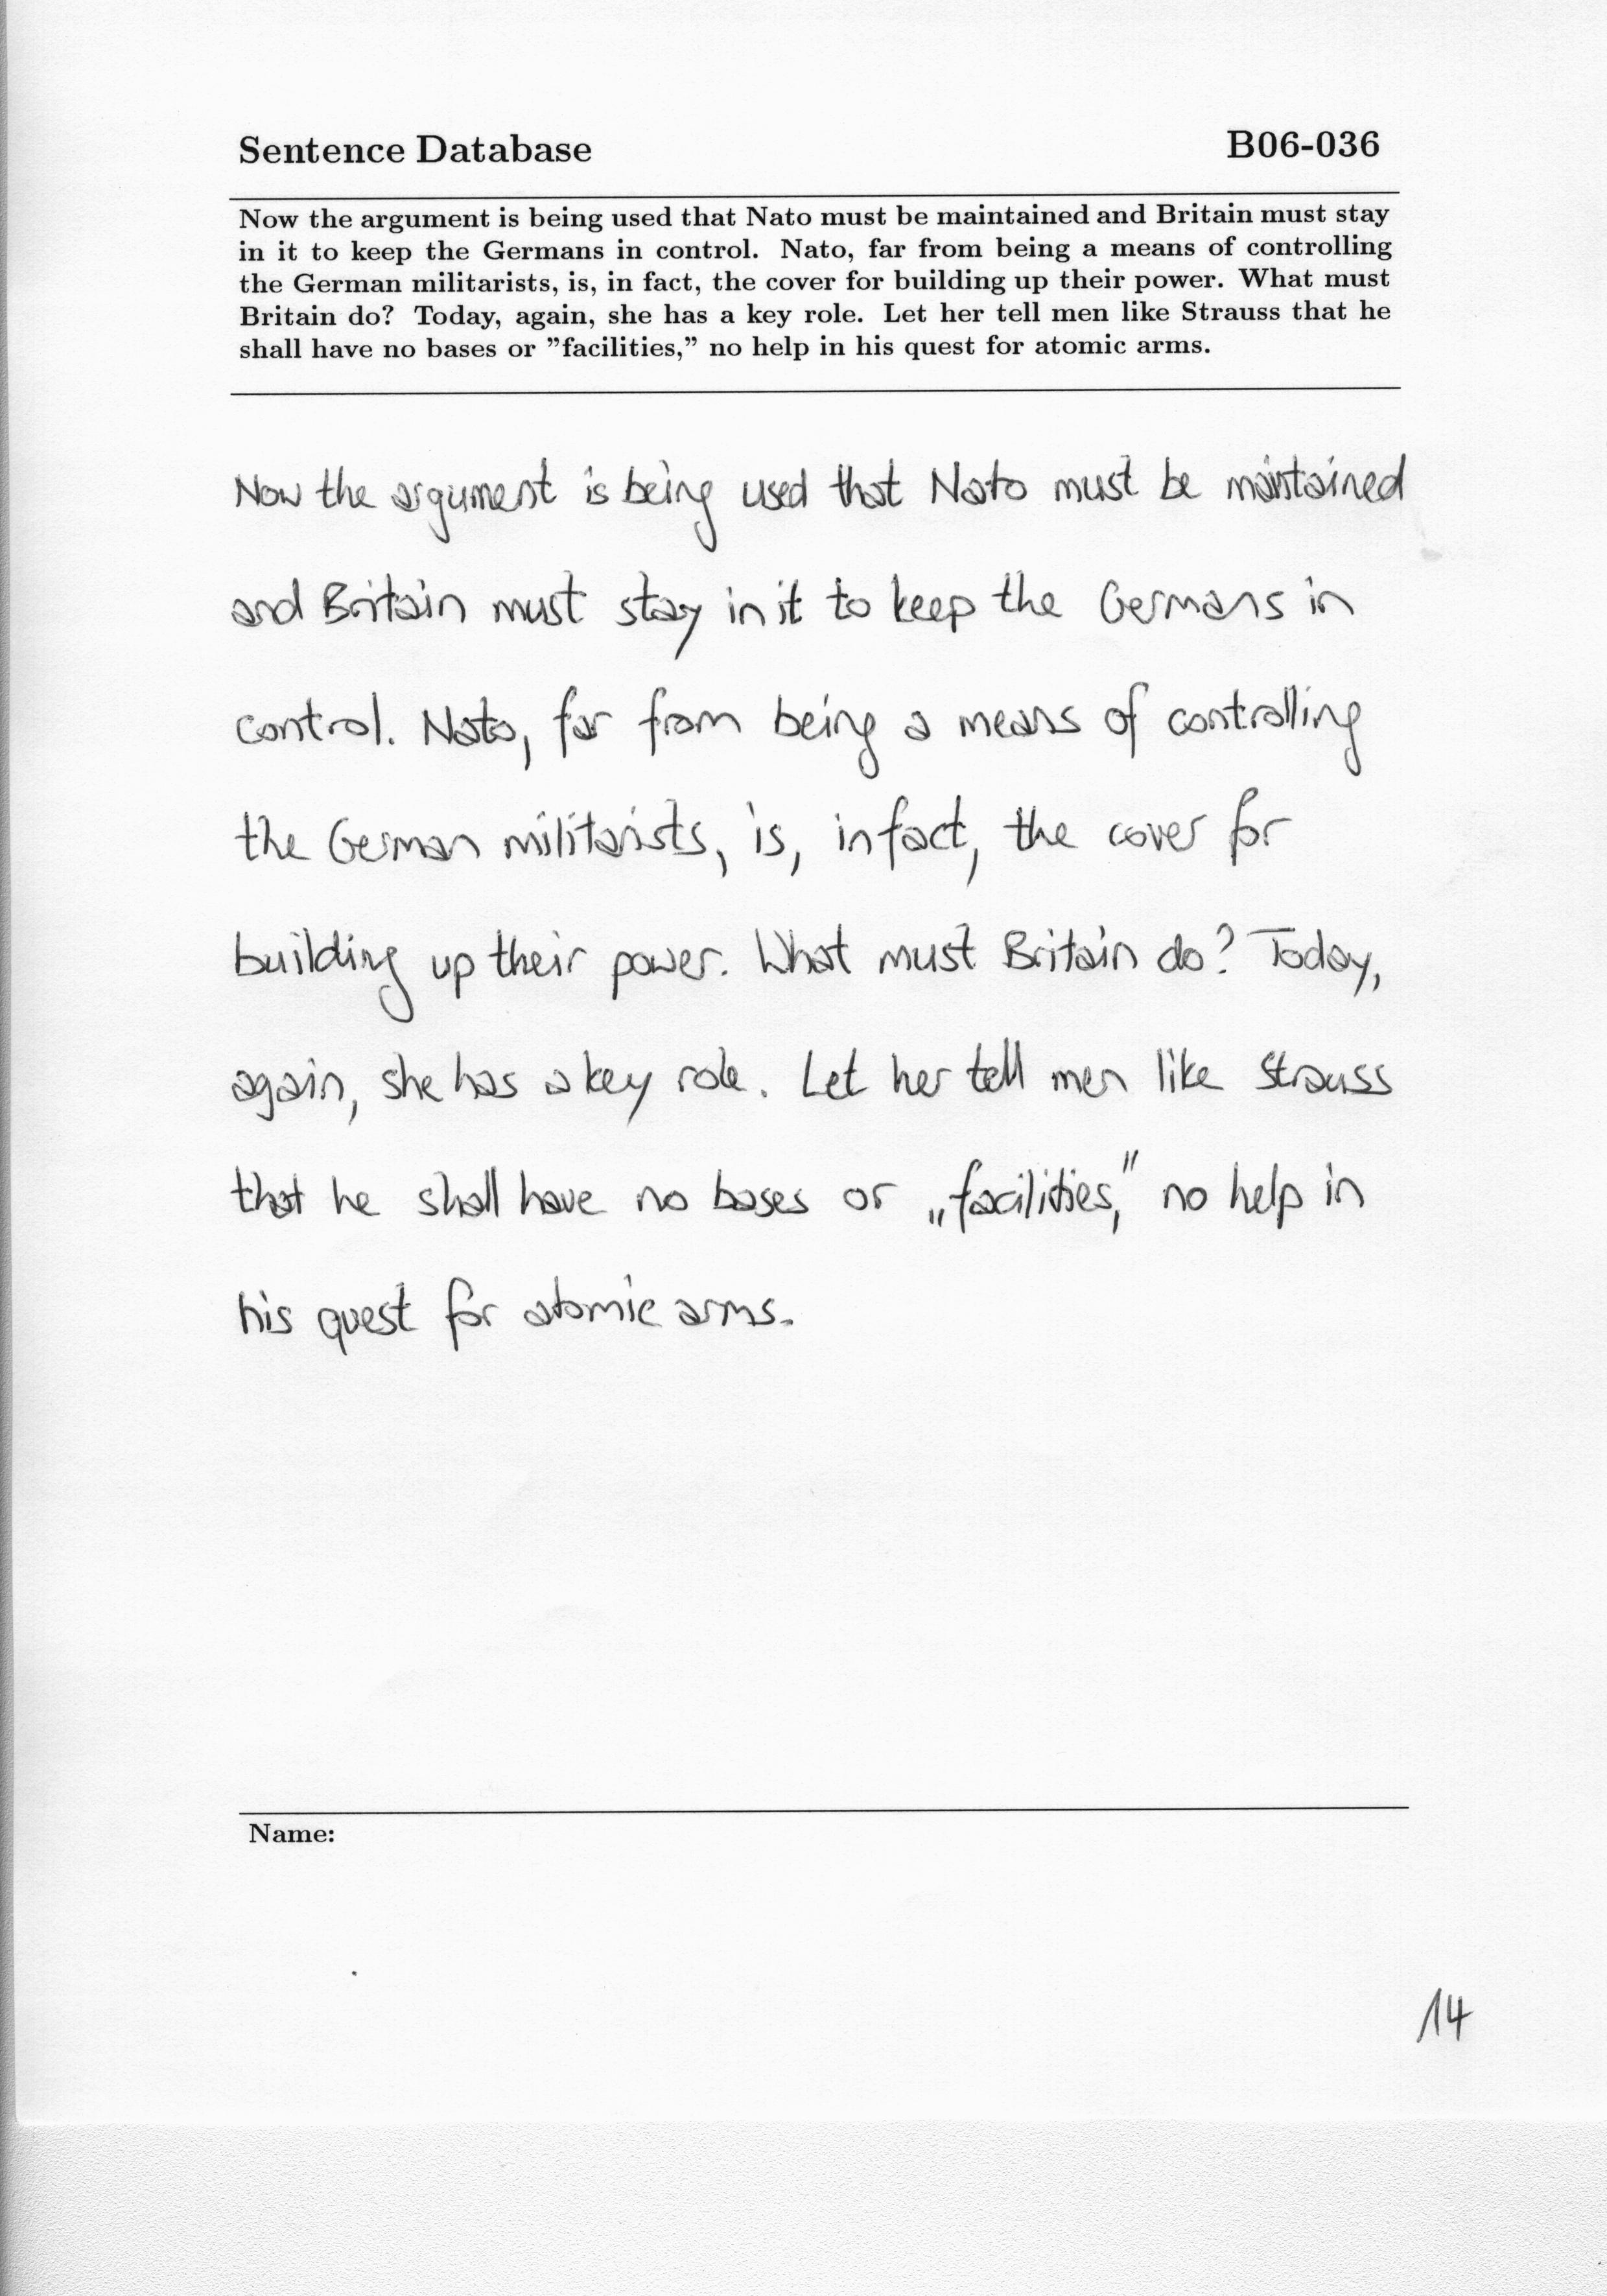 Sentence Database B06-036
Now the argument is being used that Nato must be maintained and Britain must stay
in it to keep the Germans in control. Nato, far from being a means of controlling
the German militarists, is, in fact, the cover for building up their power. What must
Britain do? Today, again, she has a key role. Let her tell men like Strauss that he
shall have no bases or ”facilities,” no help in his quest for atomic arms.
Now the argument is being used that Nato must be maintained
and Britain must stay in it to keep the Germans in
control. Nato, far from being a means of controlling
the German militarists, is, in fact, the cover for
building up their power. What must Britain do? Today,
again, she has a key role. Let her tell men like Strauss
that he shall have no bases or „facilities,” no help in
his quest for atomic arms.
Name:
14